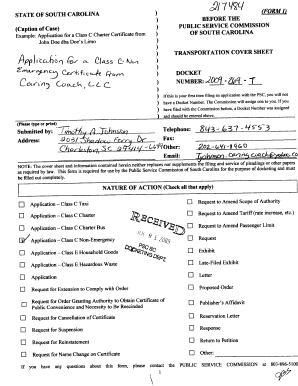 217484
(FORM 1)
STATE OF SOUTH CAROLINA
(Caption of Case)
Example: Application for a Class C Charter Certificate from
John Doe dba Doe's Limo
Application for a Class C Non-
Emergency Certificate from
Caring Coach, LLC
BEFORE THE
PUBLIC SERVICE COMMISSION
OF SOUTH CAROLINA
TRANSPORTATION COVER SHEET
DOCKET
NUMBER: 2009 - 269 - T
If this is your first time filing an application with the PSC, you will not
have a Docket Number. The Commission will assign one to you. If you
have filed with the Commission before, a Docket Number was assigned
and should be entered above.
(Please type or print)
Submitted by: Timothy A. Johnson
Address: 2031 Shadow Ferry Dr
Charleston, SC 29414
Telephone: 843-637-4553
Fax:
Other: 202-641-8960
Email: Tjohnson
NOTE: The cover sheet and information contained herein neither replaces nor supplements the filing and service of pleadings or other papers
as required by law. This form is required for use by the Public Service Commission of South Carolina for the purpose of docketing and must
be filled out completely.
NATURE OF ACTION (Check all that apply)
Application – Class C Taxi
Application – Class C Charter
Application – Class C Charter Bus
Application – Class C Non-Emergency
Application – Class E Household Goods
Application – Class E Hazardous Waste
Application
Request for Extension to Comply with Order
Request for Order Granting Authority to Obtain Certificate of
Public Convenience and Necessity to be Rescinded
Request for Cancellation of Certificate
Request for Suspension
Request for Reinstatement
Request for Name Change on Certificate
RECEIVED
2009
PSC SC
DOCKETING DEPT.
Request to Amend Scope of Authority
Request to Amend Tariff (rate increase, etc.)
Request to Amend Passenger Limit
Request
Exhibit
Late-Filed Exhibit
Letter
Proposed Order
Publisher's Affidavit
Reservation Letter
Response
Return to Petition
Other:
If you have any questions about this form, please contact the PUBLIC SERVICE COMMISSION at 803-896-5100